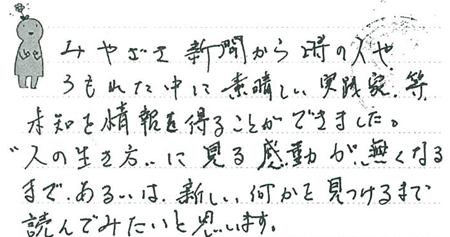 みやざき新聞から時の人や
うもれた中に素晴しい実践家.等
未知を情報を得ることができました。
"人の生き方"に見る感動が無くなる
まで.あるいは.新しい何かを見つけるまで
読んでみたいと思います。